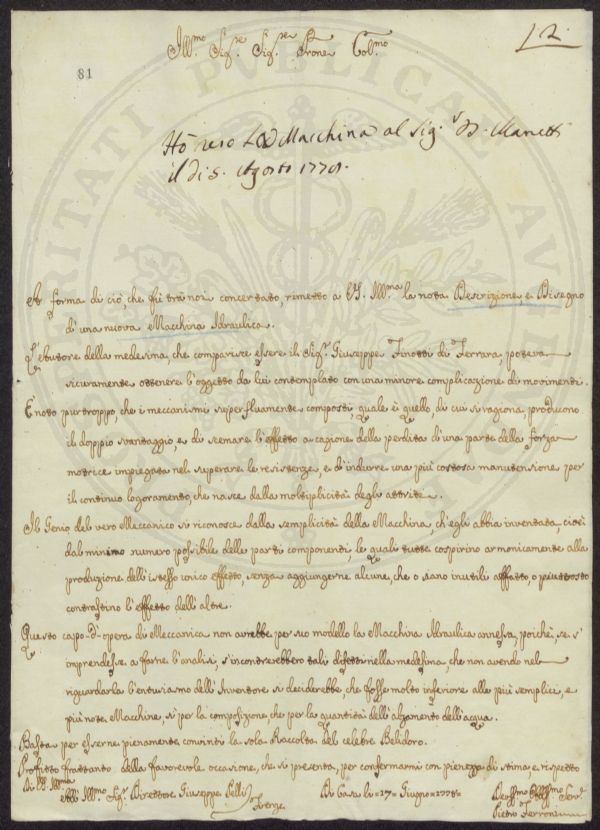 Ill.mo Sig.re Sig.re Prone Col.mo
12.
81
Hò reso La Macchina al Sig.r D. Manetti
il dì 5. Agosto 1778.
A forma di ciò, che fù trà noi concertato, rimetto a VS. Ill.ma la nota Descrizione, e Disegno
d'una nuova Macchina Idraulica.
L'Autore della medesima, che comparisce essere il Sig.r Giuseppe Finotti di Ferrara, poteva
sicuramente ottenere l'oggetto da lui contemplato con una minore complicazione di movimenti.
È noto pur troppo, che i meccanismi superfluamente composti, quale è quello, di cui si ragiona, producono
il doppio svantaggio, e di scemare l'effetto a cagione della perdita d'una parte della forza
motrice impiegata nel superare le resistenze, e d'indurre una più costosa manutensione per
il continuo logoramento, che nasce dalla moltiplicità degli attriti.
Il Genio del vero Meccanico si riconosce dalla semplicità della Macchina, ch'egli abbia inventata, cioè
dal minimo numero possibile delle parti componenti, le quali tutte cospirino armonicamente alla
produzione dell'istesso unico effetto, senza aggiungerne alcune, che o siano inutili affatto, o piuttosto
contrastino l'effetto dell'altre.
Questo capo-d'opera di Meccanica non avrebbe per suo modello la Macchina Idraulica annessa, poichè, se s'
imprendesse a farne l'analisi, s'incontrerebbero tali difetti nella medesima, che non avendo nel
riguardarla l'entusiasmo dell'Inventore si deciderebbe, che fosse molto inferiore alle più semplici, e
più note Macchine, sì per la composizione, che per la quantità dell'alzamento dell'acqua.
Basta per esserne pienamente convinti la sola Raccolta del celebre Belidoro.
Profitto frattanto della favorevole occasione, che si presenta, per confermarmi con pienezza di stima, e rispetto
Di VS. Ill.ma
Ill.mo Sig.r Direttore Giuseppe Pelli
Firenze
Di Casa li 17 Giugno 1778
Dev.mo Obbl.mo Serv.
Pietro Ferroni